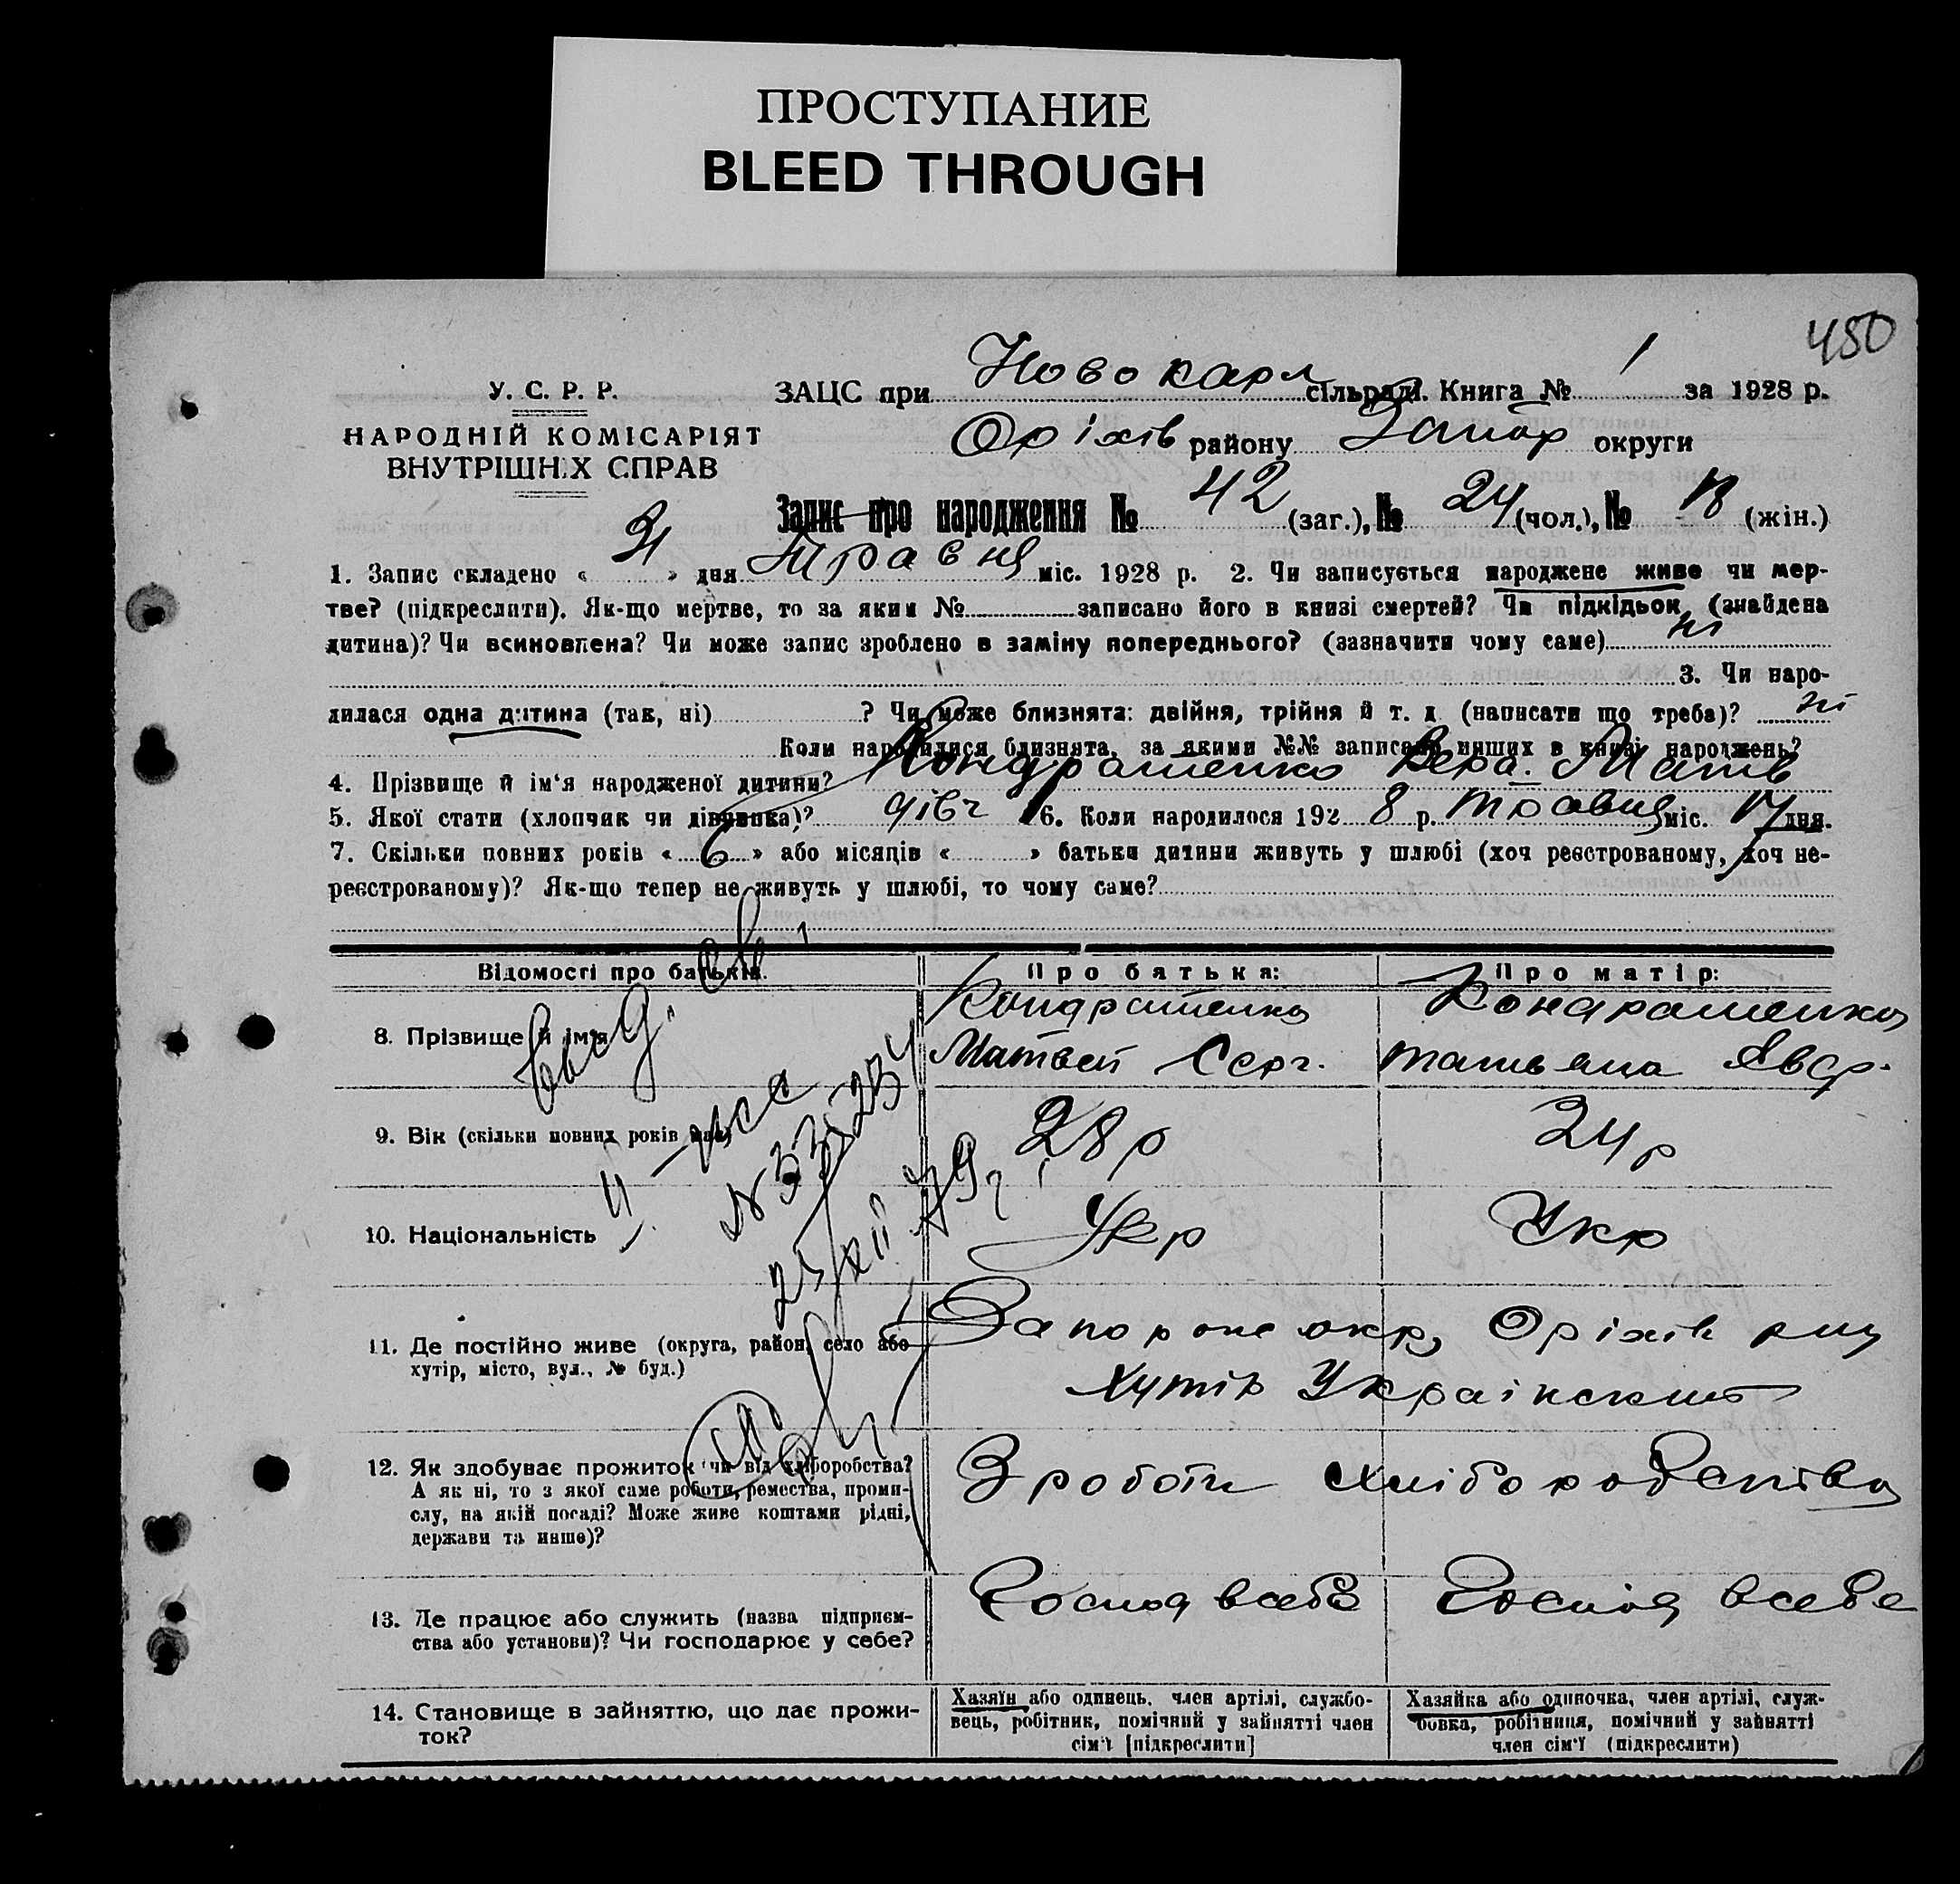 ПРОСТУПАНИЕ
BLEED THROUGH
450
У. С. Р. Р.
НАРОДНІЙ КОМІСАРІЯТ
ВНУТРІШНІХ СПРАВ
ЗАЦС при Новокарл сільраді. Книга № 1 за 1928 р.
Оріхів району Запор округи
Запис про народження № 42 (заг.), № 24 (чол.), № 18 (жін.)
1. Запис складено « 21 » дня Травня міс. 1928 р. 2. Чи записується народжене живе чи мер-
тве? (підкреслити). Як-що мертве, то за яким № записано його в книзі смертей? Чи підкідьок (знайдена
дитина)? Чи всиновлена? Чи може запис зроблено в заміну попереднього? (зазначити чому саме) ні
3. Чи наро-
дилася одна дитина (так, ні) ? Чи може близнята: двійня, трійня й т. д. (написати що треба)? ні
Коли народилися близнята, за якими №№ записано инших в книзі народжень?
4. Прізвище й ім'я народженої дитини? Кондрашенко Вера Матв
5. Якої стати (хлопчик чи дівчинка)? дівч 6. Коли народилося 1928 р. травня міс. 17 дня.
7. Скільки повних років « 6 » або місяців « » батьки дитини живуть у шлюбі (хоч реєстрованому, хоч не-
реєстрованому)? Як-що тепер не живуть у шлюбі, то чому саме?
Відомості про батьків. Про батька: Про матір:
8. Прізвище й ім'я Кондрашенко Кондрашенко
Матвей Серг. Татьяна Явд.
9. Вік (скільки повних років має) 28 р 24 р
10. Національність Укр Укр
11. Де постійно живе (округа, район, село або Запорож окр, Оріхів рну
хутір, місто, вул., № буд.) Хутір Украінский
12. Як здобуває прожиток чи від хліборобства? З роботи хліборобства
А як ні, то з якої саме роботи, ремества, проми-
слу, на якій посаді? Може живе коштами рідні,
держави та инше)?
13. Де працює або служить (назва підприєм- Господ в себе Господ в себе
ства або установи)? Чи господарює у себе?
14. Становище в зайняттю, що дає прожи-
ток?
Хазяїн або одинець, член артілі, службо-
вець, робітник, помічний у зайнятті член
сім'ї [підкреслити]
Хазяйка або одиночка, член артілі, служ-
бовка, робітниця, помічний у зайнятті
член сім'ї (підкреслити)
выд. св.
25/XII 79г